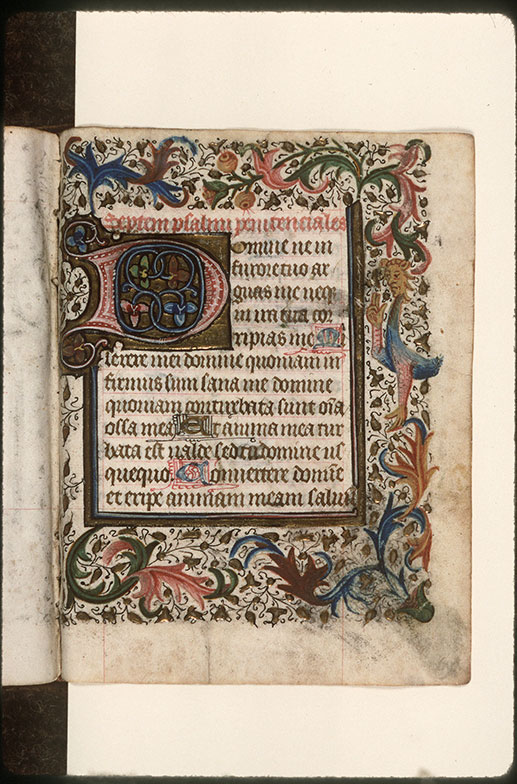 Septem psalmi penitenciales
Domine ne in
furore tuo ar
guas me neqz
in ira tua cor
ripias me Mi
serere mei domine quoniam in
firmus sum sana me domine
quoniam conturbata sunt oīa
ossa mea Et anima mea tur
bata est valde sed tu domine us
quequo Convertere domīe
et eripe animam meam salūū